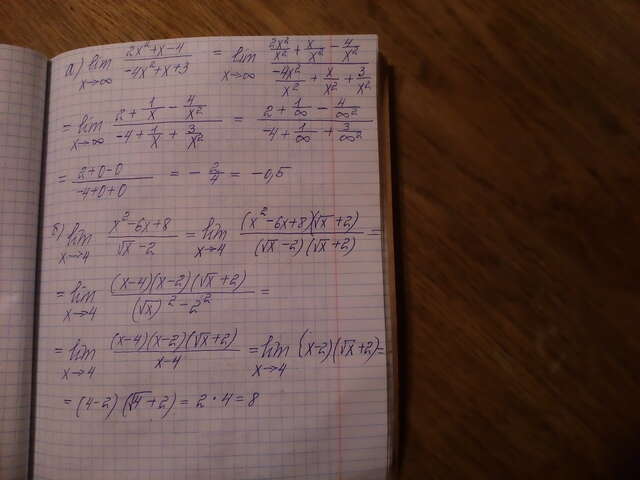 а) lim x→∞ (2x²+x-4)/(-4x²+x+3) = lim x→∞ (2x²/x² + x/x² - 4/x²)/(-4x²/x² + x/x² + 3/x²)
= lim x→∞ (2 + 1/x - 4/x²)/(-4 + 1/x + 3/x²) = (2 + 1/∞ - 4/∞²)/(-4 + 1/∞ + 3/∞²)
= (2+0-0)/(-4+0+0) = - 2/4 = -0,5
б) lim x→4 (x²-6x+8)/(√x - 2) = lim x→4 (x²-6x+8)(√x+2)/(√x-2)(√x+2) =
= lim x→4 (x-4)(x-2)(√x+2)/((√x)² - 2²) =
= lim x→4 (x-4)(x-2)(√x+2)/(x-4) = lim x→4 (x-2)(√x+2) =
= (4-2)(√4+2) = 2·4 = 8